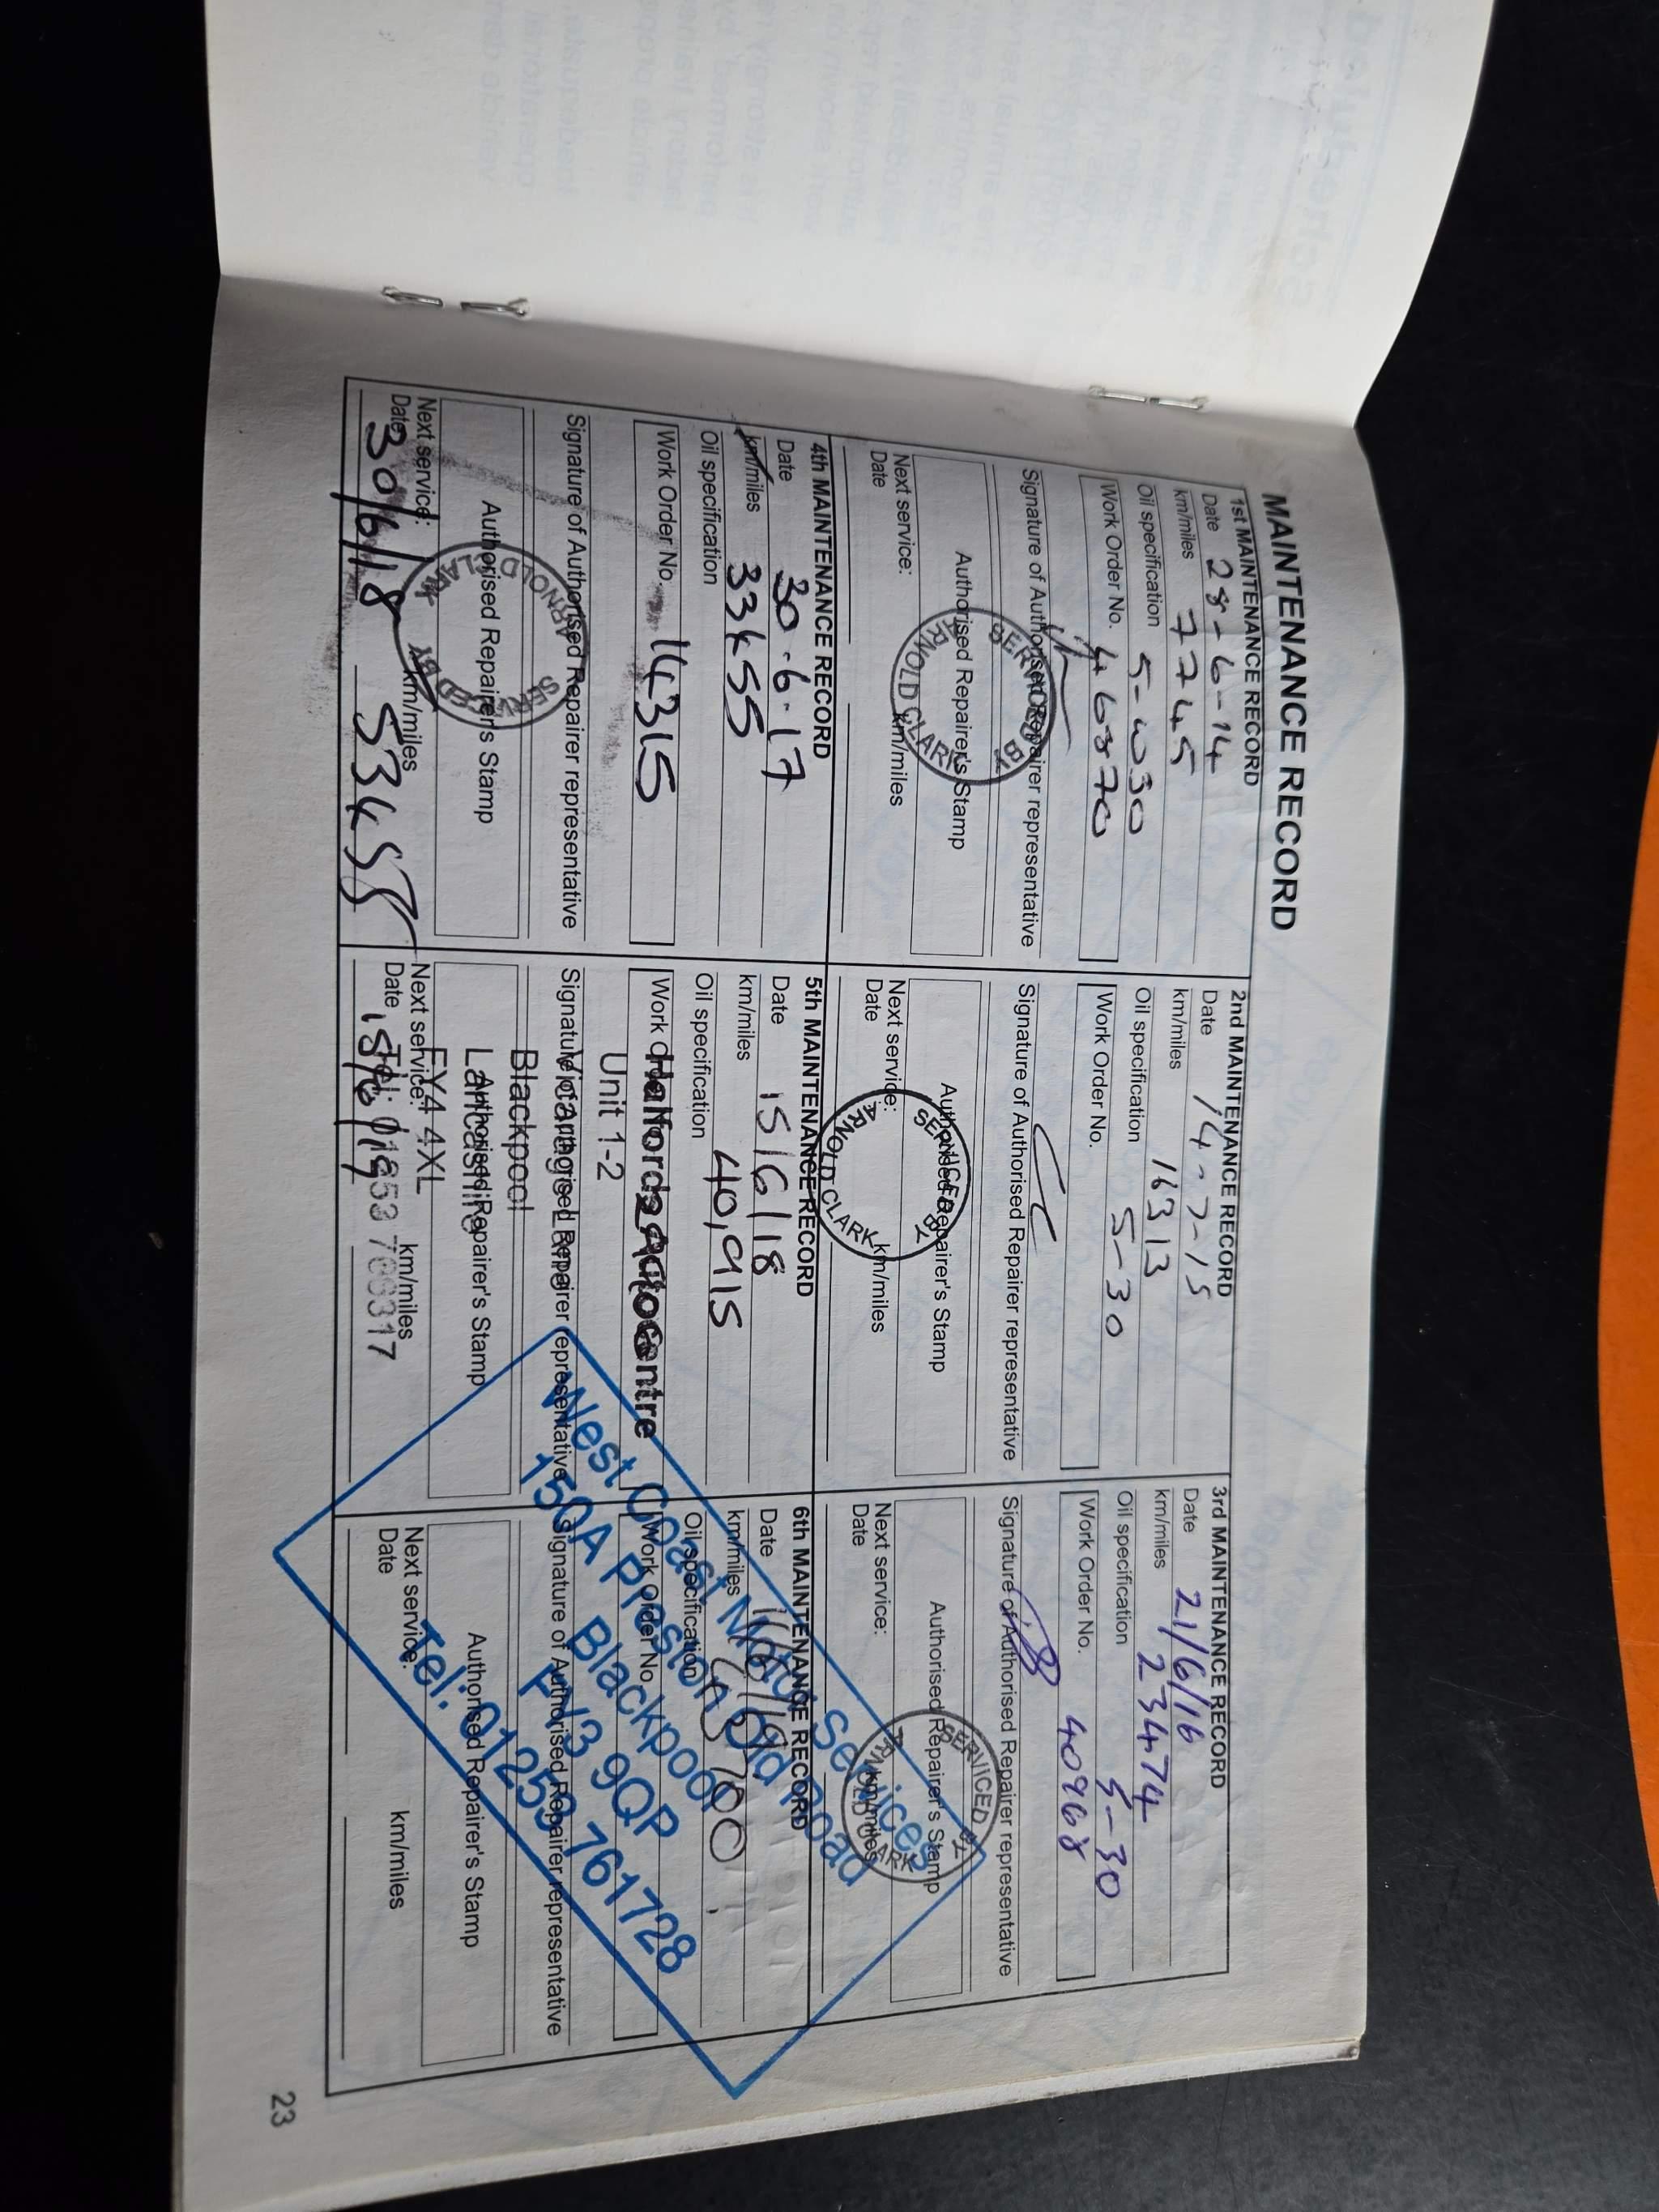 MAINTENANCE RECORD
1st MAINTENANCE RECORD
Date 28-6-14
km/miles 7745
Oil specification 5-w30
Work Order No. 46870
Signature of Authorised Repairer representative
SERVICED BY
ARNOLD CLARK
Authorised Repairer's Stamp
Next service:
Date km/miles
2nd MAINTENANCE RECORD
Date 14-7-15
km/miles 16313
Oil specification 5-30
Work Order No.
Signature of Authorised Repairer representative
SERVICED BY
ARNOLD CLARK
Authorised Repairer's Stamp
Next service:
Date km/miles
3rd MAINTENANCE RECORD
Date 21/6/16
km/miles 23474
Oil specification 5-30
Work Order No. 40968
Signature of Authorised Repairer representative
SERVICED BY
ARNOLD CLARK
Authorised Repairer's Stamp
Next service:
Date km/miles
4th MAINTENANCE RECORD
Date 30.6.17
km/miles 33455
Oil specification
Work Order No. 14315
Signature of Authorised Repairer representative
SERVICED BY
ARNOLD CLARK
Authorised Repairer's Stamp
Next service: km/miles
Date 30/6/18 53455
5th MAINTENANCE RECORD
Date 15/6/18
km/miles 40,915
Oil specification
Work
Halfords Autocentre
Unit 1-2
Signature of Authorised Repairer representative
Vicarage Lane
Blackpool
Lancashire
Authorised Repairer's Stamp
FY4 4XL
Next service: km/miles
Date 15/6/19
Tel: 01253
6th MAINTENANCE RECORD
Date
km/miles
Oil specification
Work Order No.
Signature of Authorised Repairer representative
Authorised Repairer's Stamp
Next service:
Date km/miles
West Coast Motor Services
150A Preston Old Road
Blackpool
FY3 9QP
Tel: 01253 761728
23